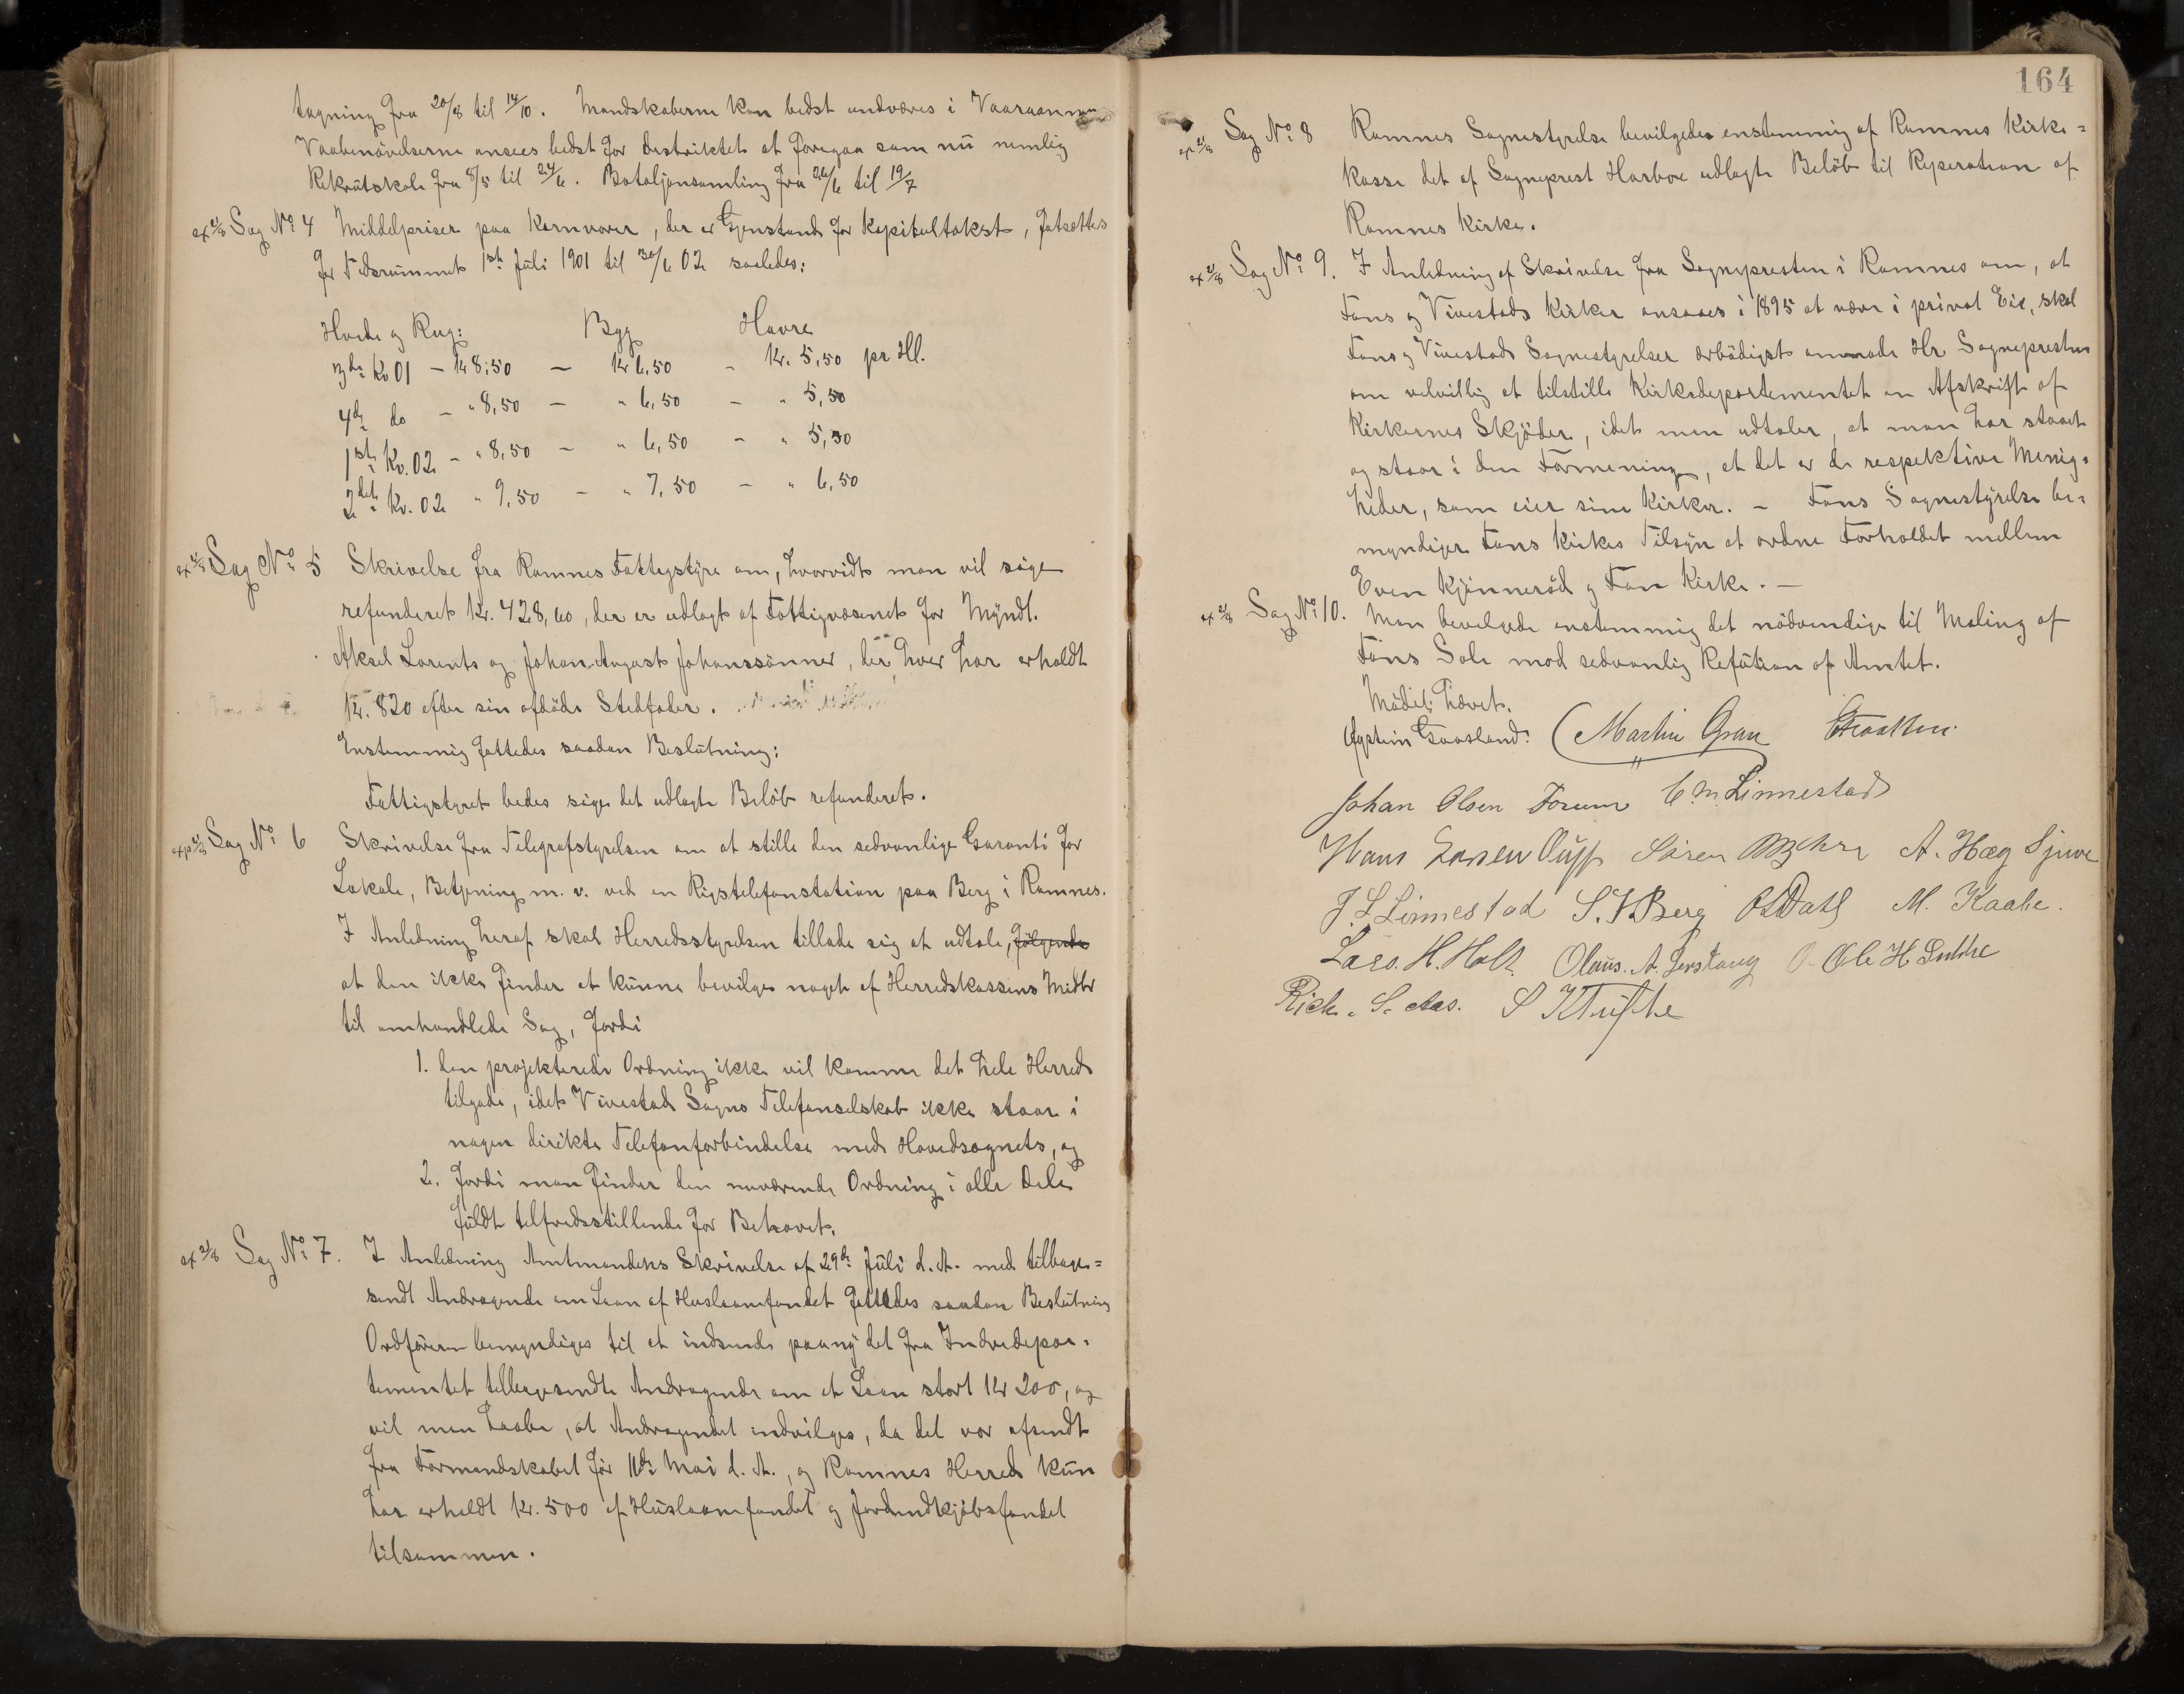 tagning fra 20/8 til 14/10. Mandskaberne kan bedst undværes i Vaaraannen
Vaabenøvelserne ansees bedst for Destriktet at foregaa som nu nemlig
Rekrutskole fra 8/5 til 24/6. Bataljonsamling fra 26/6 til 19/7
ex 2/8 Sag No 4 Middelpriser paa Kornvarer, der er Gjenstand for Kapitultakst, fatsættes
for Tidsrummet 1ste Juli 1901 til 30/6 02 saaledes:
Hvede og Rug: Byg Havre
3die Kv 01 – Kr 8,50 – Kr 6,50 – Kr. 5,50 pr Hl.
4de do – " 8,50 – " 6,50 – " 5,50
1ste Kv. 02 – " 8,50 – " 6,50 – " 5,50
2det Kv. 02 " 9,50 – " 7,50 – " 6,50
ex 2/8 Sag No 5 Skrivelse fra Ramnes Fattigstyre om, hvorvidt man vil søge
refunderet Kr. 428,60, der er udlagt af Fattigvæsenet for Myndl.
Aksel Lorents og Johan August Johanssønner, der hver har erholdt
Kr. 820 efter sin afdøde Stedfader.
Enstemmig fattedes saadan Beslutning:
Fattigstyret bedes søge det udlagte Beløb refunderet.
exp 2/8 Sag No 6 Skrivelse fra Telegrafstyrelsen om at stille den sedvanlige Garanti for
Lokale, Betjening m. v. ved en Rigstelefonstation paa Berg i Ramnes.
I Anledning heraf skal Herredsstyrelsen tillade sig at udtale, følgende
at den ikke finder at kunne bevilge noget af Herredskassens Midler
til omhandlede Sag, fordi
1. den projekterede Ordning ikke vil komme det hele Herred
tilgode, idet Vivestad Sogns Telefonselskab ikke staar i
nogen direkte Telefonforbindelse med Hovedsognets, og
2. fordi man finder den nuværende Ordning i alle Dele
fuldt tilfredsstillende for Behovet.
ex 2/8 Sag No 7. I Anledning Amtmandens Skrivelse af 29de Juli d. A. med tilbage=
sendt Andragende om Laan af Huslaanfondet fattedes saadan Beslutning
Ordføreren bemyndiges til at indsende paany det fra Indredepar=
tementet tilbagesendte Andragende om et Laan stort Kr 200, og
vil man haabe, at Andragendet indvilges, da det var afsendt
fra Formandskabet før 11te Mai d. A., og Ramnes Herred kun
har erholdt Kr. 500 af Huslaanfondet og Jordindkjøbsfondet
tilsammen.
164
ex 2/8 Sag No 8 Ramnes Sognestyrelse bevilgedes enstemmig af Ramnes Kirke=
kasse det af Sogneprest Harboe udlagte Beløb til Reperation af
Ramnes Kirke.
ex 2/8 Sag No 9. I Anledning af Skrivelse fra Sognepresten i Ramnes om, at
Fons og Vivestads Kirker ansaaes i 1895 at være i privat Eie, skal
Fons og Vivestads Sognestyrelser ærbødigst anmode Hr Sognepresten
om velvillig at tilstille Kirkedepartementet en Afskrift af
Kirkernes Skjøder, idet man udtaler, at man har staaet
og staar i den Formening, at det er de respektive Menig=
heder, som eier sine Kirker. – Fons Sognestyrelse be=
myndiger Fons Kirkes Tilsyn at ordne Forholdet mellem
Even Kjønnerød og Fon Kirke. –
ex 2/8 Sag No 10. Man bevilgede enstemmig det nødvendige til Maling af
Fons Sole mod sedvanlig Refution af Amtet.
Mødet hævet.
Øystein Gaasland. Martin Gran
Johan Olsen Forum C. M. Linnestad
Hans Søren A. Hæg
J. L. Linnestad S. Berg Dahl M. Kaabe.
Lars. H. Holt. Olaus. A. Ole H
Rich. S. Aas. S